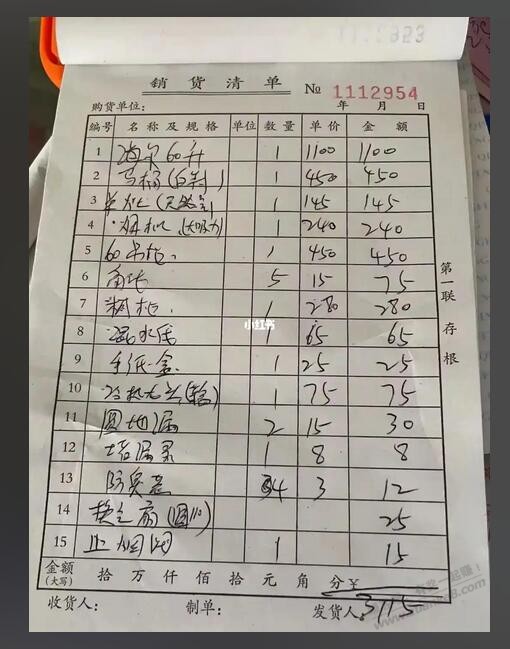 1112953
銷货清单 № 1112954
购货单位： 年 月 日
编号 名称及规格 单位 数量 单价 金额
1 海尔60升 1 1100 1100
2 马桶(白 ) 1 450 450
3 (天然气) 1 145 145
4 烟机(大吸力) 1 240 240
5 60 柜 1 450 450
6 角 5 15 75
7 1 280 280
8 1 65 65
9 手纸盒 1 25 25
10 龙头 1 75 75
11 圆地漏 2 15 30
12 地漏 1 8 8
13 防臭 4 3 12
14 换气扇(圆110) 25
15 止烟阀 1 15
金额(大写) 拾 万 仟 佰 拾 元 角 分 ¥ 3115
收货人： 制单： 发货人：
第一联 存根
小红书